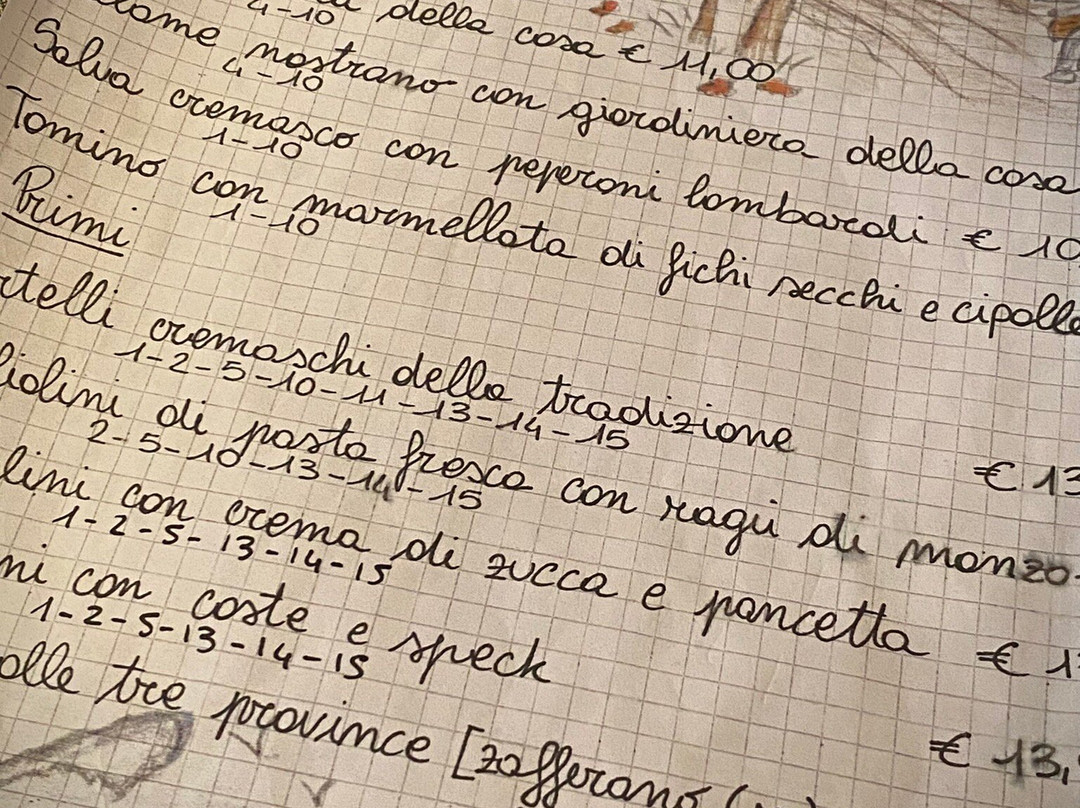 della casa € 11,00
4-10
nostrano con giardiniera della casa
4-10
Salva cremasco con peperoni lombardi € 10
1-10
Tomino con marmellata di fichi secchi e cipolle
1-10
Primi
telli cremaschi della tradizione
1-2-5-10-11-13-14-15
€ 13
liolini di pasta fresca con ragù di manzo
2-5-10-13-14-15
lini con crema di zucca e pancetta € 1
1-2-5-13-14-15
ni con coste e speck
1-2-5-13-14-15
€ 13,
alle tre province [zafferano